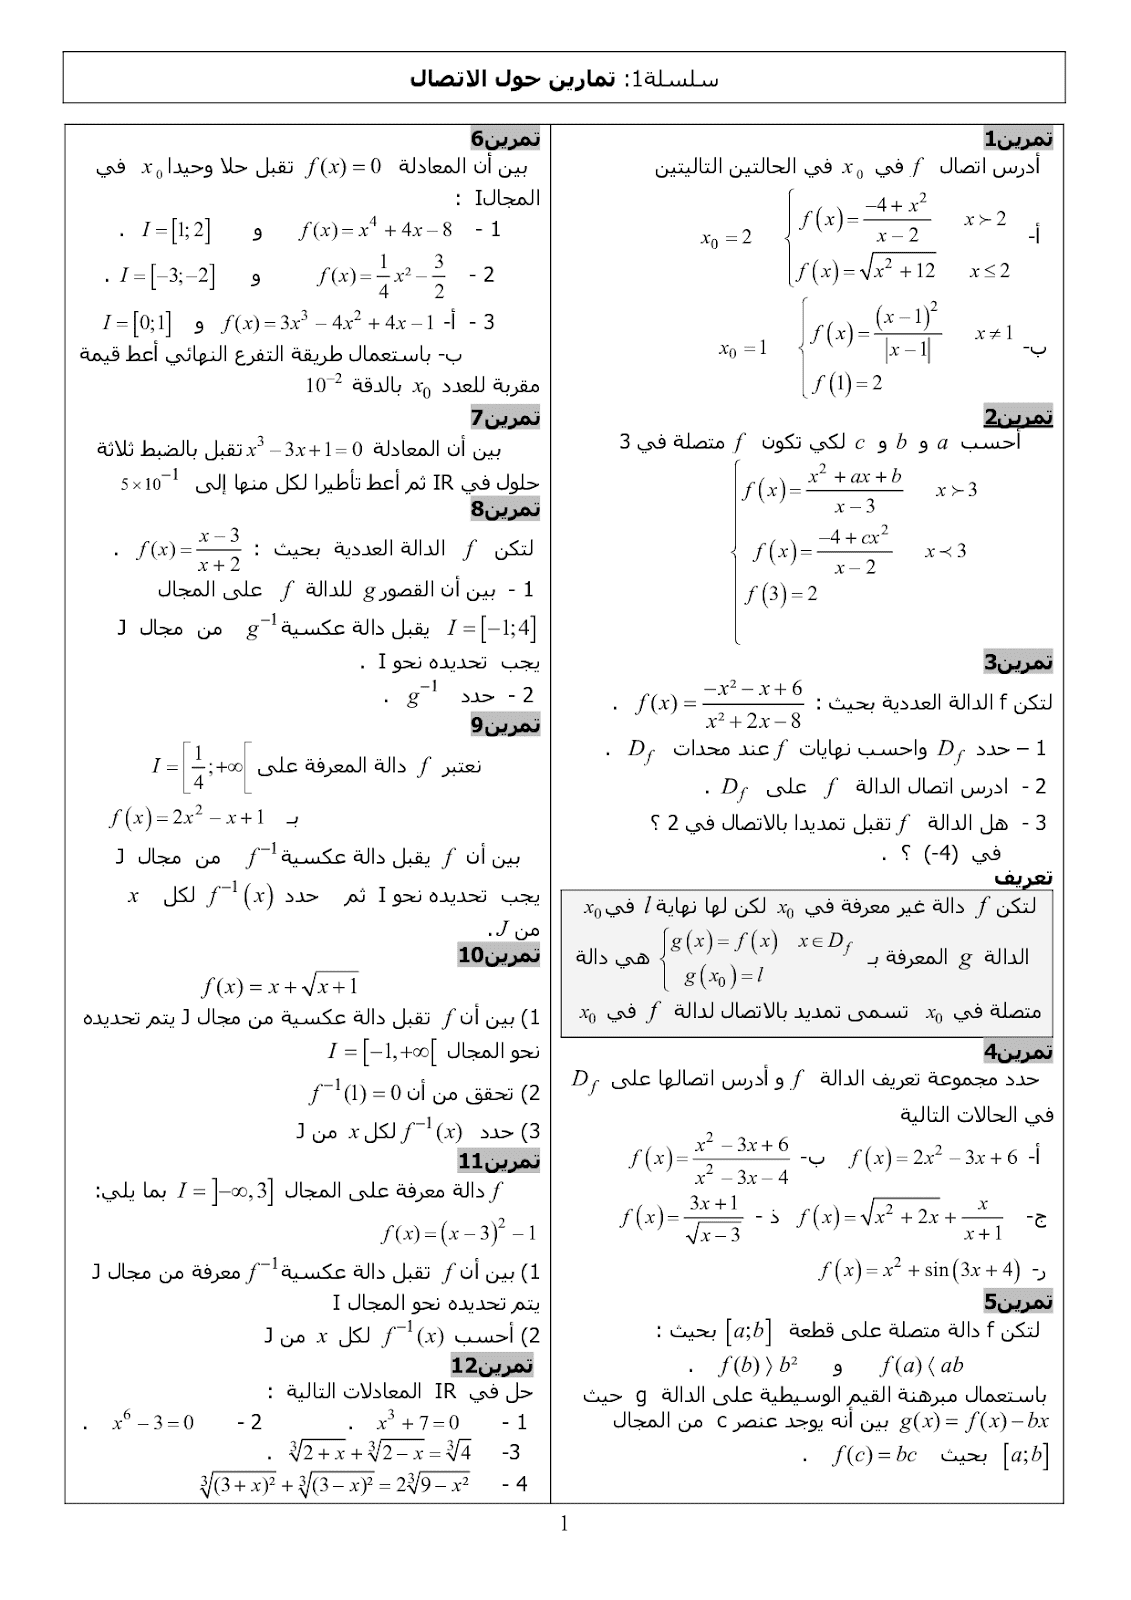 سلسلة1: تمارين حول الاتصال
تمرين1
أدرس اتصال f في x₀ في الحالتين التاليتين
أ- { f(x) = (−4 + x²)/(x − 2)   x ≻ 2
f(x) = √(x² + 12)   x ≤ 2   x₀ = 2
ب- { f(x) = (x − 1)²/|x − 1|   x ≠ 1
f(1) = 2   x₀ = 1
تمرين2
أحسب a و b و c لكي تكون f متصلة في 3
{ f(x) = (x² + ax + b)/(x − 3)   x ≻ 3
f(x) = (−4 + cx²)/(x − 2)   x ≺ 3
f(3) = 2
تمرين3
لتكن f الدالة العددية بحيث : f(x) = (−x² − x + 6)/(x² + 2x − 8) .
1 – حدد D_f واحسب نهايات f عند محدات D_f .
2 - ادرس اتصال الدالة f على D_f .
3 - هل الدالة f تقبل تمديدا بالاتصال في 2 ؟
في (-4) ؟ .
تعريف
لتكن f دالة غير معرفة في x₀ لكن لها نهاية l في x₀
الدالة g المعرفة بـ { g(x) = f(x)   x ∈ D_f
g(x₀) = l   هي دالة
متصلة في x₀ تسمى تمديد بالاتصال لدالة f في x₀
تمرين4
حدد مجموعة تعريف الدالة f و أدرس اتصالها على D_f
في الحالات التالية
أ- f(x) = 2x² − 3x + 6   ب- f(x) = (x² − 3x + 6)/(x² − 3x − 4)
ج- f(x) = √(x² + 2x) + x/(x + 1)   ذ - f(x) = (3x + 1)/√(x − 3)
ر- f(x) = x² + sin(3x + 4)
تمرين5
لتكن f دالة متصلة على قطعة [a;b] بحيث :
f(a) ⟨ ab   و   f(b) ⟩ b² .
باستعمال مبرهنة القيم الوسيطية على الدالة g حيث
g(x) = f(x) − bx بين أنه يوجد عنصر c من المجال
[a;b] بحيث f(c) = bc .
تمرين6
بين أن المعادلة f(x) = 0 تقبل حلا وحيدا x₀ في
المجالI :
1 - f(x) = x⁴ + 4x − 8   و   I = [1; 2] .
2 - f(x) = 1/4 x² − 3/2   و   I = [−3; −2] .
3 - أ- f(x) = 3x³ − 4x² + 4x − 1 و I = [0;1]
ب- باستعمال طريقة التفرع النهائي أعط قيمة
مقربة للعدد x₀ بالدقة 10⁻²
تمرين7
بين أن المعادلة x³ − 3x + 1 = 0 تقبل بالضبط ثلاثة
حلول في IR ثم أعط تأطيرا لكل منها إلى 5×10⁻¹
تمرين8
لتكن f الدالة العددية بحيث : f(x) = (x − 3)/(x + 2) .
1 - بين أن القصور g للدالة f على المجال
I = [−1; 4] يقبل دالة عكسية g⁻¹ من مجال J
يجب تحديده نحو I .
2 - حدد g⁻¹ .
تمرين9
نعتبر f دالة المعرفة على I = [1/4; +∞[
بـ f(x) = 2x² − x + 1
بين أن f يقبل دالة عكسية f⁻¹ من مجال J
يجب تحديده نحو I ثم حدد f⁻¹(x) لكل x
من J.
تمرين10
f(x) = x + √(x + 1)
1) بين أن f تقبل دالة عكسية من مجال J يتم تحديده
نحو المجال I = [−1, +∞[
2) تحقق من أن f⁻¹(1) = 0
3) حدد f⁻¹(x) لكل x من J
تمرين11
f دالة معرفة على المجال I = ]−∞, 3] بما يلي:
f(x) = (x − 3)² − 1
1) بين أن f تقبل دالة عكسية f⁻¹ معرفة من مجال J
يتم تحديده نحو المجال I
2) أحسب f⁻¹(x) لكل x من J
تمرين12
حل في IR المعادلات التالية :
1 - x³ + 7 = 0 .   2 - x⁶ − 3 = 0 .
3- ∛(2 + x) + ∛(2 − x) = ∛4 .
4 - ∛((3 + x)²) + ∛((3 − x)²) = 2∛(9 − x²)
1